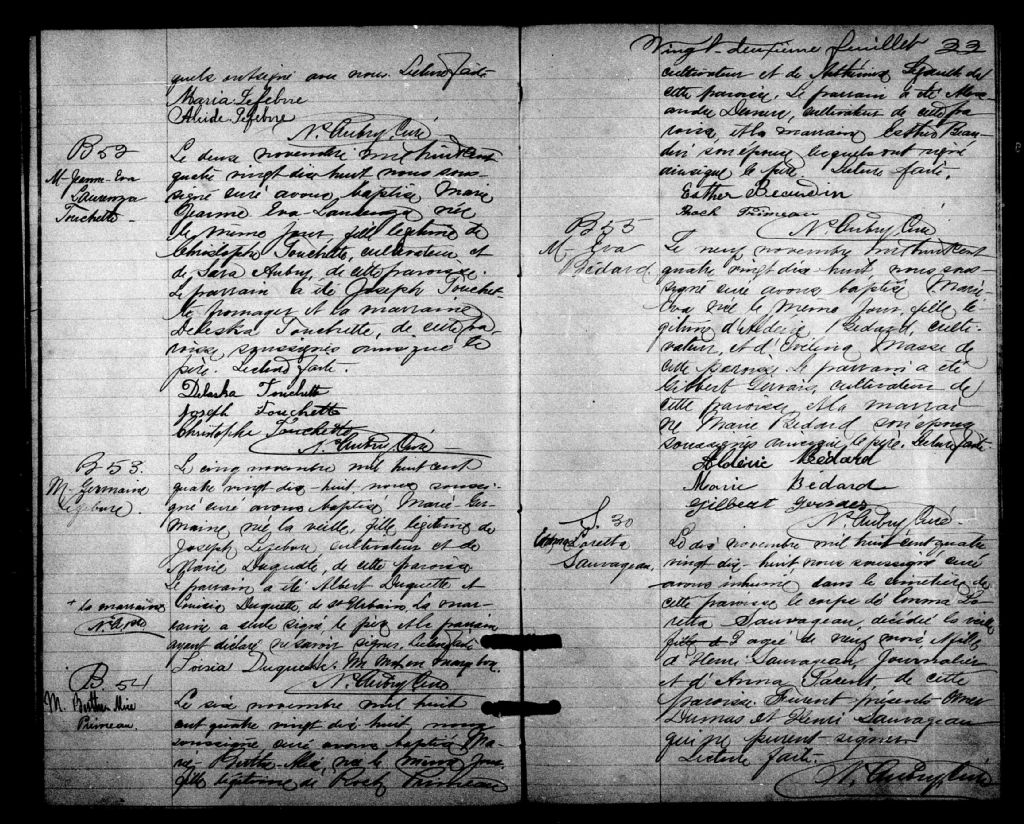 quels ont signé avec nous. Lecture faite
Maria Lefebvre
Alcide Lefebvre
N. Aubry, Curé
B 52
M. Jeanne Eva
Laurenza
Touchette
Le deux novembre mil huit cent
quatre vingt dix huit nous sous-
signé curé avons baptisé Marie
Jeanne Eva Laurenza née
le meme jour, fille légitime de
Christophe Touchette, cultivateur et
de Sara Aubry, de cette paroisse.
Le parrain a été Joseph Touchet-
te fromager et la marraine
Delaska Touchette, de cette pa-
roisse soussignés ainsi que le
père. Lecture faite.
Delaska Touchette
Joseph Touchette
Christophe Touchette
N. Aubry Curé
B 53.
M. Germaine
Lefebvre.
Le cinq novembre mil huit cent
quatre vingt dix-huit, nous soussi-
gné curé avons baptisé Marie Ger-
maine née la veille, fille légitime de
Joseph Lefebvre cultivateur et de
Marie Duquette, de cette paroisse
Le parrain a été Albert Duquette et
Duquette, de St Urbain. La mar-
+ la marraine
N. A. ptre
raine a seule signé le père et le parrain
ayant déclaré ne savoir signer. Lecture faite
Duquette. Un mot en marge bon.
N. Aubry Curé
B. 54
M. Berthe Alice
Primeau.
Le six novembre mil huit
cent quatre vingt dix-huit nous
soussigné curé avons baptisé Ma-
rie Berthe née le meme jour
fille légitime de Rock Primeau
Vingt-deuxième feuillet 22
cultivateur et de de
cette paroisse. Le parrain a été
cultivateur de cette pa-
roisse, et la marraine Esther Beau-
din son épouse lesquels ont signé
ainsi que le père. Lecture faite.
Esther Beaudin
Rock Primeau
N. Aubry, Curé
B 55
M. Eva
Bédard.
Le neuf novembre mil huit cent
quatre vingt dix huit, nous sous-
signé curé avons baptisé Marie
Eva née le meme jour, fille lé-
gitime d'Aldéric Bédard, culti-
vateur, et d'Evelina Masse de
cette paroisse. Le parrain a été
Gilbert Gervais, cultivateur de
cette paroisse et la marrai-
ne Marie Bedard son épouse
soussignés ainsi que le père. Lecture faite
Aldéric Bédard
Marie Bedard
Gilbert
N. Aubry Curé.
S. 30
Emma Loretta
Sauvageau.
Le dix novembre mil huit cent quatre
vingt dix-huit nous soussigné curé
avons inhumé dans le cimetière de
cette paroisse le corps de Emma Lo-
retta Sauvageau, décédée la veille
agée de neuf mois, fille
d'Henri Sauvageau, Journalier
et d'Anna Parent de cette
paroisse. Furent présents Omer
Dumas et Henri Sauvageau
qui ne purent signer
Lecture faite.
N. Aubry, Curé